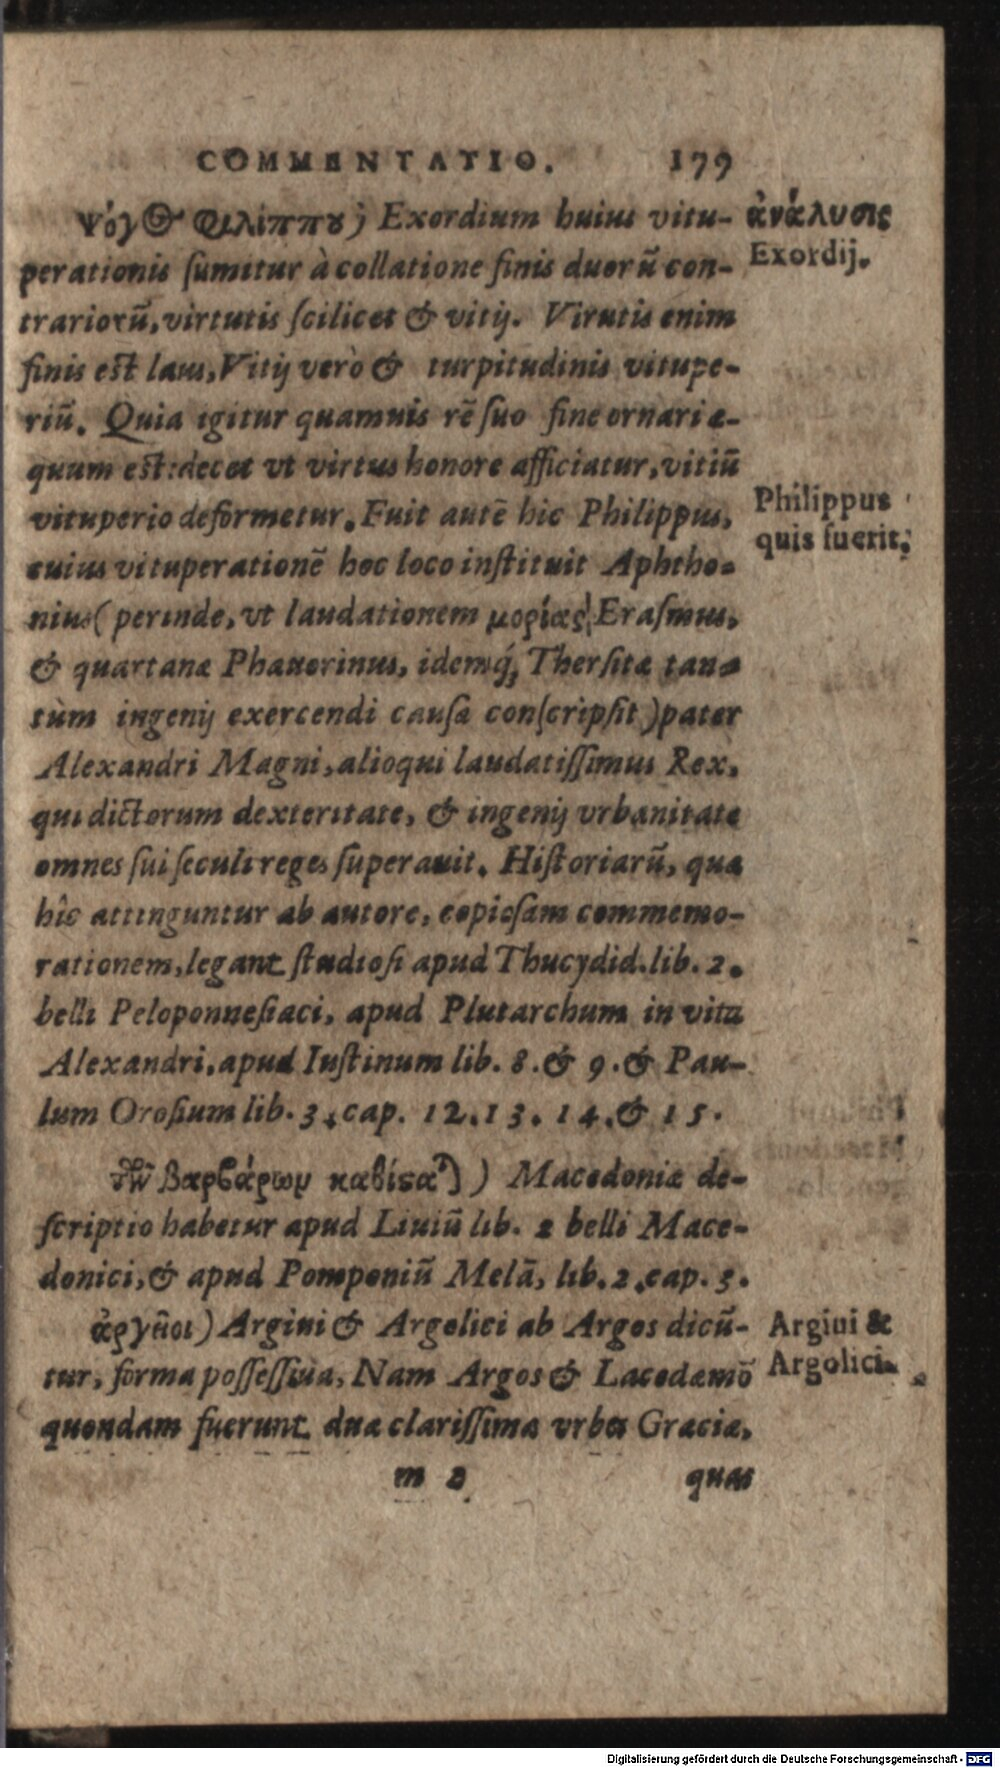 COMMENTATIO. 179
ψόγος φιλίππου) Exordium huius vitu-
perationis sumitur à collatione finis duorũ con-
trariorũ, virtutis scilicet & vitij. Virutis enim
finis est laus, Vitij verò & turpitudinis vitupe-
riũ. Quia igitur quamuis rẽ suo fine ornari æ-
quum est: decet vt virtus honore afficiatur, vitiũ
vituperio deformetur. Fuit autẽ hic Philippus,
cuius vituperationẽ hoc loco instituit Aphtho-
nius (perinde, vt laudationem μορίας Erasmus,
& quartanæ Phauorinus, idemq́, Thersitæ tan-
tùm ingenij exercendi causa conscripsit) pater
Alexandri Magni, alioqui laudatissimus Rex,
qui dictorum dexteritate, & ingenij vrbanitate
omnes sui seculi reges superauit. Historiarũ, quæ
hîc attinguntur ab autore, copiosam commemo-
rationem, legant studiosi apud Thucydid. lib. 2.
belli Peloponnesiaci, apud Plutarchum in vita
Alexandri, apud Iustinum lib. 8. & 9. & Pau-
lum Orosium lib. 3. cap. 12. 13. 14. & 15.
τῶν βαρβάρων καθίσα)) Macedoniæ de-
scriptio habetur apud Liuiũ lib. 2 belli Mace-
donici, & apud Pomponiũ Melã, lib. 2. cap. 3.
ἀργῆοι) Argini & Argolici ab Argos dicũ-
tur, forma possessiua, Nam Argos & Lacedæmõ
quondam fuerunt duæ clarissimæ vrbes Græciæ,
m 2 quas
ἀνάλυσις
Exordij.
Philippus
quis fuerit.
Argiui &
Argolici.
Digitalisierung gefördert durch die Deutsche Forschungsgemeinschaft - DFG